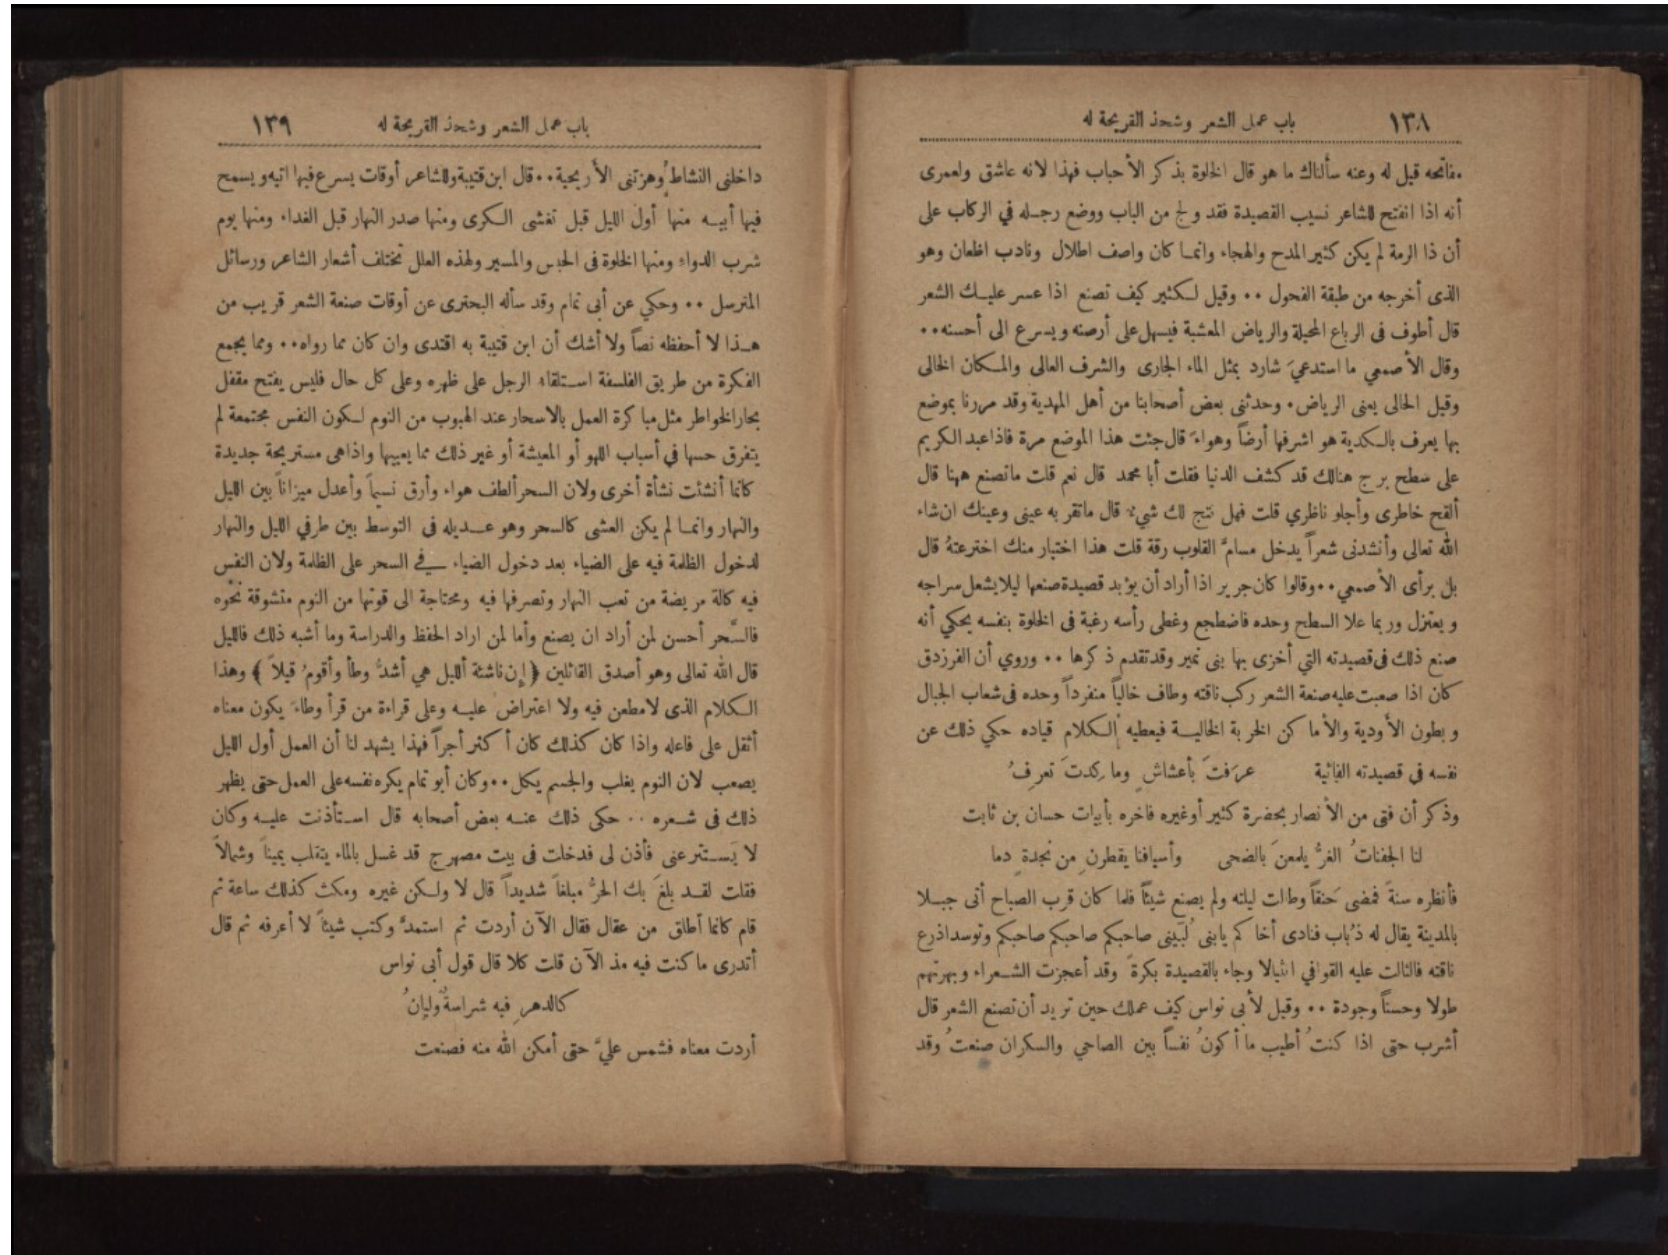 ١٣٨ باب عمل الشعر وشحذ القريحة له
مفاتحه قيل له وعنه سألناك ما هو قال الخلوة بذكر الأحباب فهذا لانه عاشق ولعمرى
أنه اذا انفتح للشاعر نسيب القصيدة فقد ولج من الباب ووضع رجله في الركاب على
أن ذا الرمة لم يكن كثير المدح والهجاء وانما كان واصف اطلال ونادب اظعان وهو
الذى أخرجه من طبقة الفحول ٠٠ وقيل لكثير كيف تصنع اذا عسر عليك الشعر
قال أطوف فى الرباع المحيلة والرياض المعشبة فيسهل على أرصنه ويسرع الى أحسنه٠٠
وقال الأصمعي ما استدعيَ شارد بمثل الماء الجارى والشرف العالى والمكان الخالى
وقيل الحالى يعنى الرياض٠ وحدثنى بعض أصحابنا من أهل المهدية وقد مررنا بموضع
بها يعرف بالكدية هو اشرفها أرضاً وهواءً قال جئت هذا الموضع مرة فاذا عبد الكريم
على سطح برج هنالك قد كشف الدنيا فقلت أبا محمد قال نعم قلت ماتصنع ههنا قال
ألقح خاطرى وأجلو ناظري قلت فهل نتج لك شيء قال ماتقر به عينى وعينك ان شاء
الله تعالى وأنشدنى شعراً يدخل مسامَّ القلوب رقة قلت هذا اختبار منك اخترعتهُ قال
بل برأى الأصمعي٠٠وقالوا كان جرير اذا أراد أن يؤبد قصيدة صنعها ليلا يشعل سراجه
ويعتزل وربما علا السطح وحده فاضطجع وغطى رأسه رغبة فى الخلوة بنفسه يحكي أنه
صنع ذلك فى قصيدته التي أخزى بها بنى نمير وقد تقدم ذكرها ٠٠ وروي أن الفرزدق
كان اذا صعبت عليه صنعة الشعر ركب ناقته وطاف خالياً منفرداً وحده فى شعاب الجبال
وبطون الأودية والأماكن الخربة الخالية فيعطيه الكلام قياده حكي ذلك عن
نفسه فى قصيدته الفائية عرَفتَ بأعشاشٍ وما كِدتَ تعرفُ
وذكر أن فتى من الأنصار بحضرة كثير أوغيره فاخره بأبيات حسان بن ثابت
لنا الجفناتُ الغرُّ يلمعنَ بالضحى وأسيافنا يقطرن مِن نجدةٍ دما
فأنظره سنةً فمضى حَنقاً وطالت ليلته ولم يصنع شيئاً فلما كان قرب الصباح أتى جبلا
بالمدينة يقال له ذُباب فنادى أخاكم يابنى لُبَينى صاحبكم صاحبكم صاحبكم وتوسد اذرع
ناقته فانثالت عليه القوافي انثيالا وجاء بالقصيدة بكرةً وقد أعجزت الشعراء وبهرتهم
طولا وحسناً وجودة ٠٠ وقيل لأبى نواس كيف عملك حين تريد أن تصنع الشعر قال
أشرب حتى اذا كنتُ أطيب ما أكونُ نفساً بين الصاحي والسكران صنعتُ وقد
باب عمل الشعر وشحذ القريحة له ١٣٩
داخلنى النشاط وهزتنى الأريحية٠٠قال ابن قتيبة وللشاعر أوقات يسرع فيها اتيه ويسمح
فيها أبيه منها أول الليل قبل تغشى الكرى ومنها صدر النهار قبل الغداء ومنها يوم
شرب الدواء ومنها الخلوة فى الحبس والمسير ولهذه العلل تختلف أشعار الشاعر ورسائل
المترسل ٠٠ وحكي عن أبى تمام وقد سأله البحترى عن أوقات صنعة الشعر قريب من
هذا لا أحفظه نصاً ولا أشك أن ابن قتيبة به اقتدى وان كان مما رواه٠٠ ومما يجمع
الفكرة من طريق الفلسفة استلقاء الرجل على ظهره وعلى كل حال فليس يفتح مقفل
بحار الخواطر مثل مباكرة العمل بالاسحار عند الهبوب من النوم لكون النفس مجتمعة لم
يتفرق حسها في أسباب اللهو أو المعيشة أو غير ذلك مما يعييها واذاهى مستريحة جديدة
كانما أنشئت نشأة أخرى ولان السحر ألطف هواء وأرق نسيماً وأعدل ميزاناً بين الليل
والنهار وانما لم يكن العشى كالسحر وهو عديله فى التوسط بين طرفي الليل والنهار
لدخول الظلمة فيه على الضياء بعد دخول الضياء في السحر على الظلمة ولان النفس
فيه كالة مريضة من تعب النهار وتصرفها فيه ومحتاجة الى قوتها من النوم متشوقة نحوه
فالسَّحر أحسن لمن أراد ان يصنع وأما لمن اراد الحفظ والدراسة وما أشبه ذلك فالليل
قال الله تعالى وهو أصدق القائلين ﴿ إِن ناشئة ألليل هي أشدُّ وطأ وأقومُ قيلاً ﴾ وهذا
الكلام الذى لامطعن فيه ولا اعتراض عليه وعلى قراءة من قرأ وطاءَ يكون معناه
أثقل على فاعله واذا كان كذلك كان أكثر أجراً فهذا يشهد لنا أن العمل أول الليل
يصعب لان النوم يغلب والجسم يكل٠٠وكان أبو تمام يكره نفسه على العمل حتى يظهر
ذلك فى شعره ٠٠ حكى ذلك عنه بعض أصحابه قال استأذنت عليه وكان
لا يَستتر عنى فأذن لى فدخلت فى بيت مصهرج قد غسل بالماء يتقلب يميناً وشمالاً
فقلت لقد بلغَ بك الحرُّ مبلغاً شديداً قال لا ولكن غيره ومكث كذلك ساعة ثم
قام كانما أطلق من عقال فقال الآن أردت ثم استمدَّ وكتب شيئاً لا أعرفه ثم قال
أتدرى ما كنت فيه مذ الآن قلت كلا قال قول أبى نواس
كالدهرِ فيه شراسةٌ وليانُ
أردت معناه فشمس عليَّ حتى أمكن الله منه فصنعت